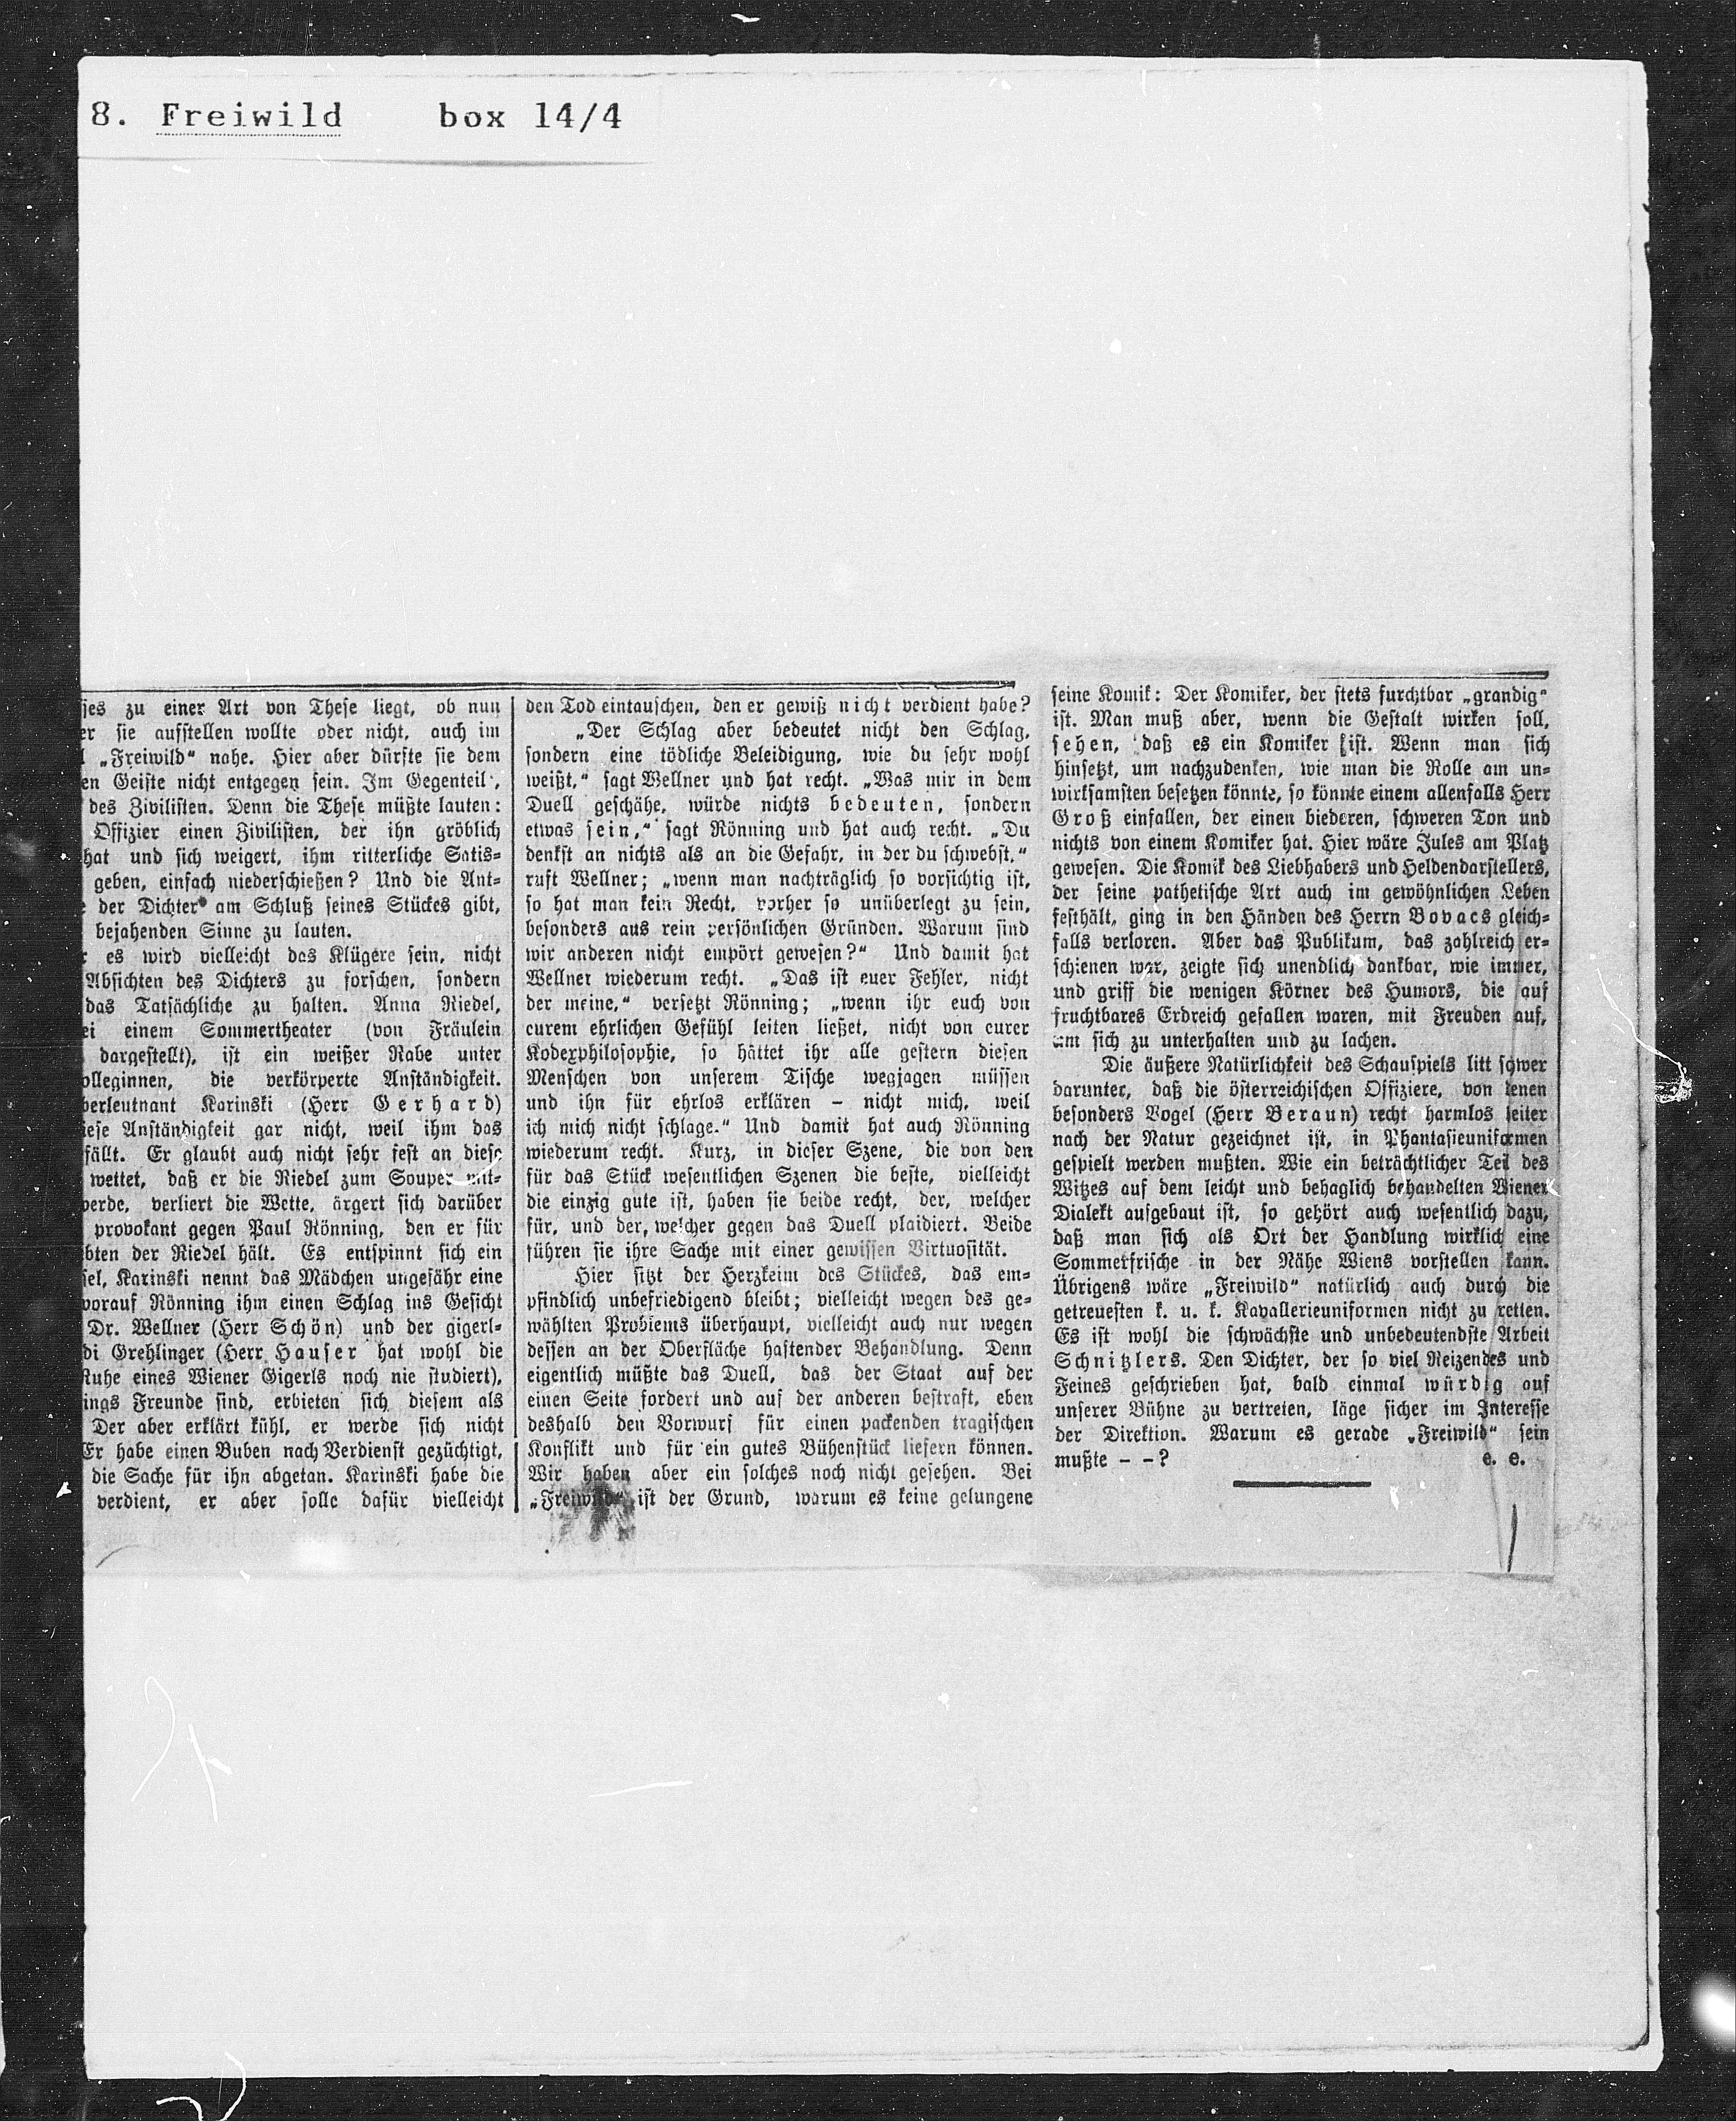 8. Freiwild box 14/4
zu einer Art von These liegt, ob nun
sie aufstellen wollte oder nicht, auch im
„Freiwild“ nahe. Hier aber dürfte sie dem
Geiste nicht entgegen sein. Im Gegenteil,
des Zivilisten. Denn die These müßte lauten:
Offizier einen Zivilisten, der ihn gröblich
hat und sich weigert, ihm ritterliche Satis-
geben, einfach niederschießen? Und die Ant-
der Dichter am Schluß seines Stückes gibt,
bejahenden Sinne zu lauten.
es wird vielleicht das Klügere sein, nicht
Absichten des Dichters zu forschen, sondern
das Tatsächliche zu halten. Anna Riedel,
einem Sommertheater (von Fräulein
dargestellt), ist ein weißer Rabe unter
olleginnen, die verkörperte Anständigkeit.
berleutnant Karinski (Herr Gerhard)
iese Anständigkeit gar nicht, weil ihm das
fällt. Er glaubt auch nicht sehr fest an diese
wettet, daß er die Riedel zum Souper mit-
werde, verliert die Wette, ärgert sich darüber
provokant gegen Paul Rönning, den er für
bten der Riedel hält. Es entspinnt sich ein
sel, Karinski nennt das Mädchen ungefähr eine
worauf Rönning ihm einen Schlag ins Gesicht
Dr. Wellner (Herr Schön) und der gigerl-
di Grehlinger (Herr Hauser hat wohl die
Ruhe eines Wiener Gigerls noch nie studiert),
ings Freunde sind, erbieten sich diesem als
Der aber erklärt kühl, er werde sich nicht
Er habe einen Buben nach Verdienst gezüchtigt,
die Sache für ihn abgetan. Karinski habe die
verdient, er aber solle dafür vielleicht
den Tod eintauschen, den er gewiß nicht verdient habe?
„Der Schlag aber bedeutet nicht den Schlag,
sondern eine tödliche Beleidigung, wie du sehr wohl
weißt,“ sagt Wellner und hat recht. „Was mir in dem
Duell geschähe, würde nichts bedeuten, sondern
etwas sein,“ sagt Rönning und hat auch recht. „Du
denkst an nichts als an die Gefahr, in der du schwebst,“
ruft Wellner; „wenn man nachträglich so vorsichtig ist,
so hat man kein Recht, vorher so unüberlegt zu sein,
besonders aus rein persönlichen Gründen. Warum sind
wir anderen nicht empört gewesen?“ Und damit hat
Wellner wiederum recht. „Das ist euer Fehler, nicht
der meine,“ versetzt Rönning; „wenn ihr euch von
eurem ehrlichen Gefühl leiten ließet, nicht von eurer
Kodexphilosophie, so hättet ihr alle gestern diesen
Menschen von unserem Tische wegjagen müssen
und ihn für ehrlos erklären – nicht mich, weil
ich mich nicht schlage.“ Und damit hat auch Rönning
wiederum recht. Kurz, in dieser Szene, die von den
für das Stück wesentlichen Szenen die beste, vielleicht
die einzig gute ist, haben sie beide recht, der, welcher
für, und der, welcher gegen das Duell plaidiert. Beide
führen sie ihre Sache mit einer gewissen Virtuosität.
Hier sitzt der Herzkeim des Stückes, das em-
pfindlich unbefriedigend bleibt; vielleicht wegen des ge-
wählten Problems überhaupt, vielleicht auch nur wegen
dessen an der Oberfläche haftender Behandlung. Denn
eigentlich müßte das Duell, das der Staat auf der
einen Seite fordert und auf der anderen bestraft, eben
deshalb den Vorwurf für einen packenden tragischen
Konflikt und für ein gutes Bühenstück liefern können.
Wir haben aber ein solches noch nicht gesehen. Bei
„Freiwild“ ist der Grund, warum es keine gelungene
seine Komik: Der Komiker, der stets furchtbar „grandig“
ist. Man muß aber, wenn die Gestalt wirken soll,
sehen, daß es ein Komiker ist. Wenn man sich
hinsetzt, um nachzudenken, wie man die Rolle am un-
wirksamsten besetzen könnte, so könnte einem allenfalls Herr
Groß einfallen, der einen biederen, schweren Ton und
nichts von einem Komiker hat. Hier wäre Jules am Platz
gewesen. Die Komik des Liebhabers und Heldendarstellers,
der seine pathetische Art auch im gewöhnlichen Leben
festhält, ging in den Händen des Herrn Bovacs gleich-
falls verloren. Aber das Publikum, das zahlreich er-
schienen war, zeigte sich unendlich dankbar, wie immer,
und griff die wenigen Körner des Humors, die auf
fruchtbares Erdreich gefallen waren, mit Freuden auf,
um sich zu unterhalten und zu lachen.
Die äußere Natürlichkeit des Schauspiels litt schwer
darunter, daß die österreichischen Offiziere, von denen
besonders Vogel (Herr Beraun) recht harmlos heiter
nach der Natur gezeichnet ist, in Phantasieuniformen
gespielt werden mußten. Wie ein beträchtlicher Teil des
Witzes auf dem leicht und behaglich behandelten Wiener
Dialekt aufgebaut ist, so gehört auch wesentlich dazu,
daß man sich als Ort der Handlung wirklich eine
Sommerfrische in der Nähe Wiens vorstellen kann.
Übrigens wäre „Freiwild“ natürlich auch durch die
getreuesten k. u. k. Kavallerieuniformen nicht zu retten.
Es ist wohl die schwächste und unbedeutendste Arbeit
Schnitzlers. Den Dichter, der so viel Reizendes und
Feines geschrieben hat, bald einmal würdig auf
unserer Bühne zu vertreten, läge sicher im Interesse
der Direktion. Warum es gerade „Freiwild“ sein
mußte – –? e. e.